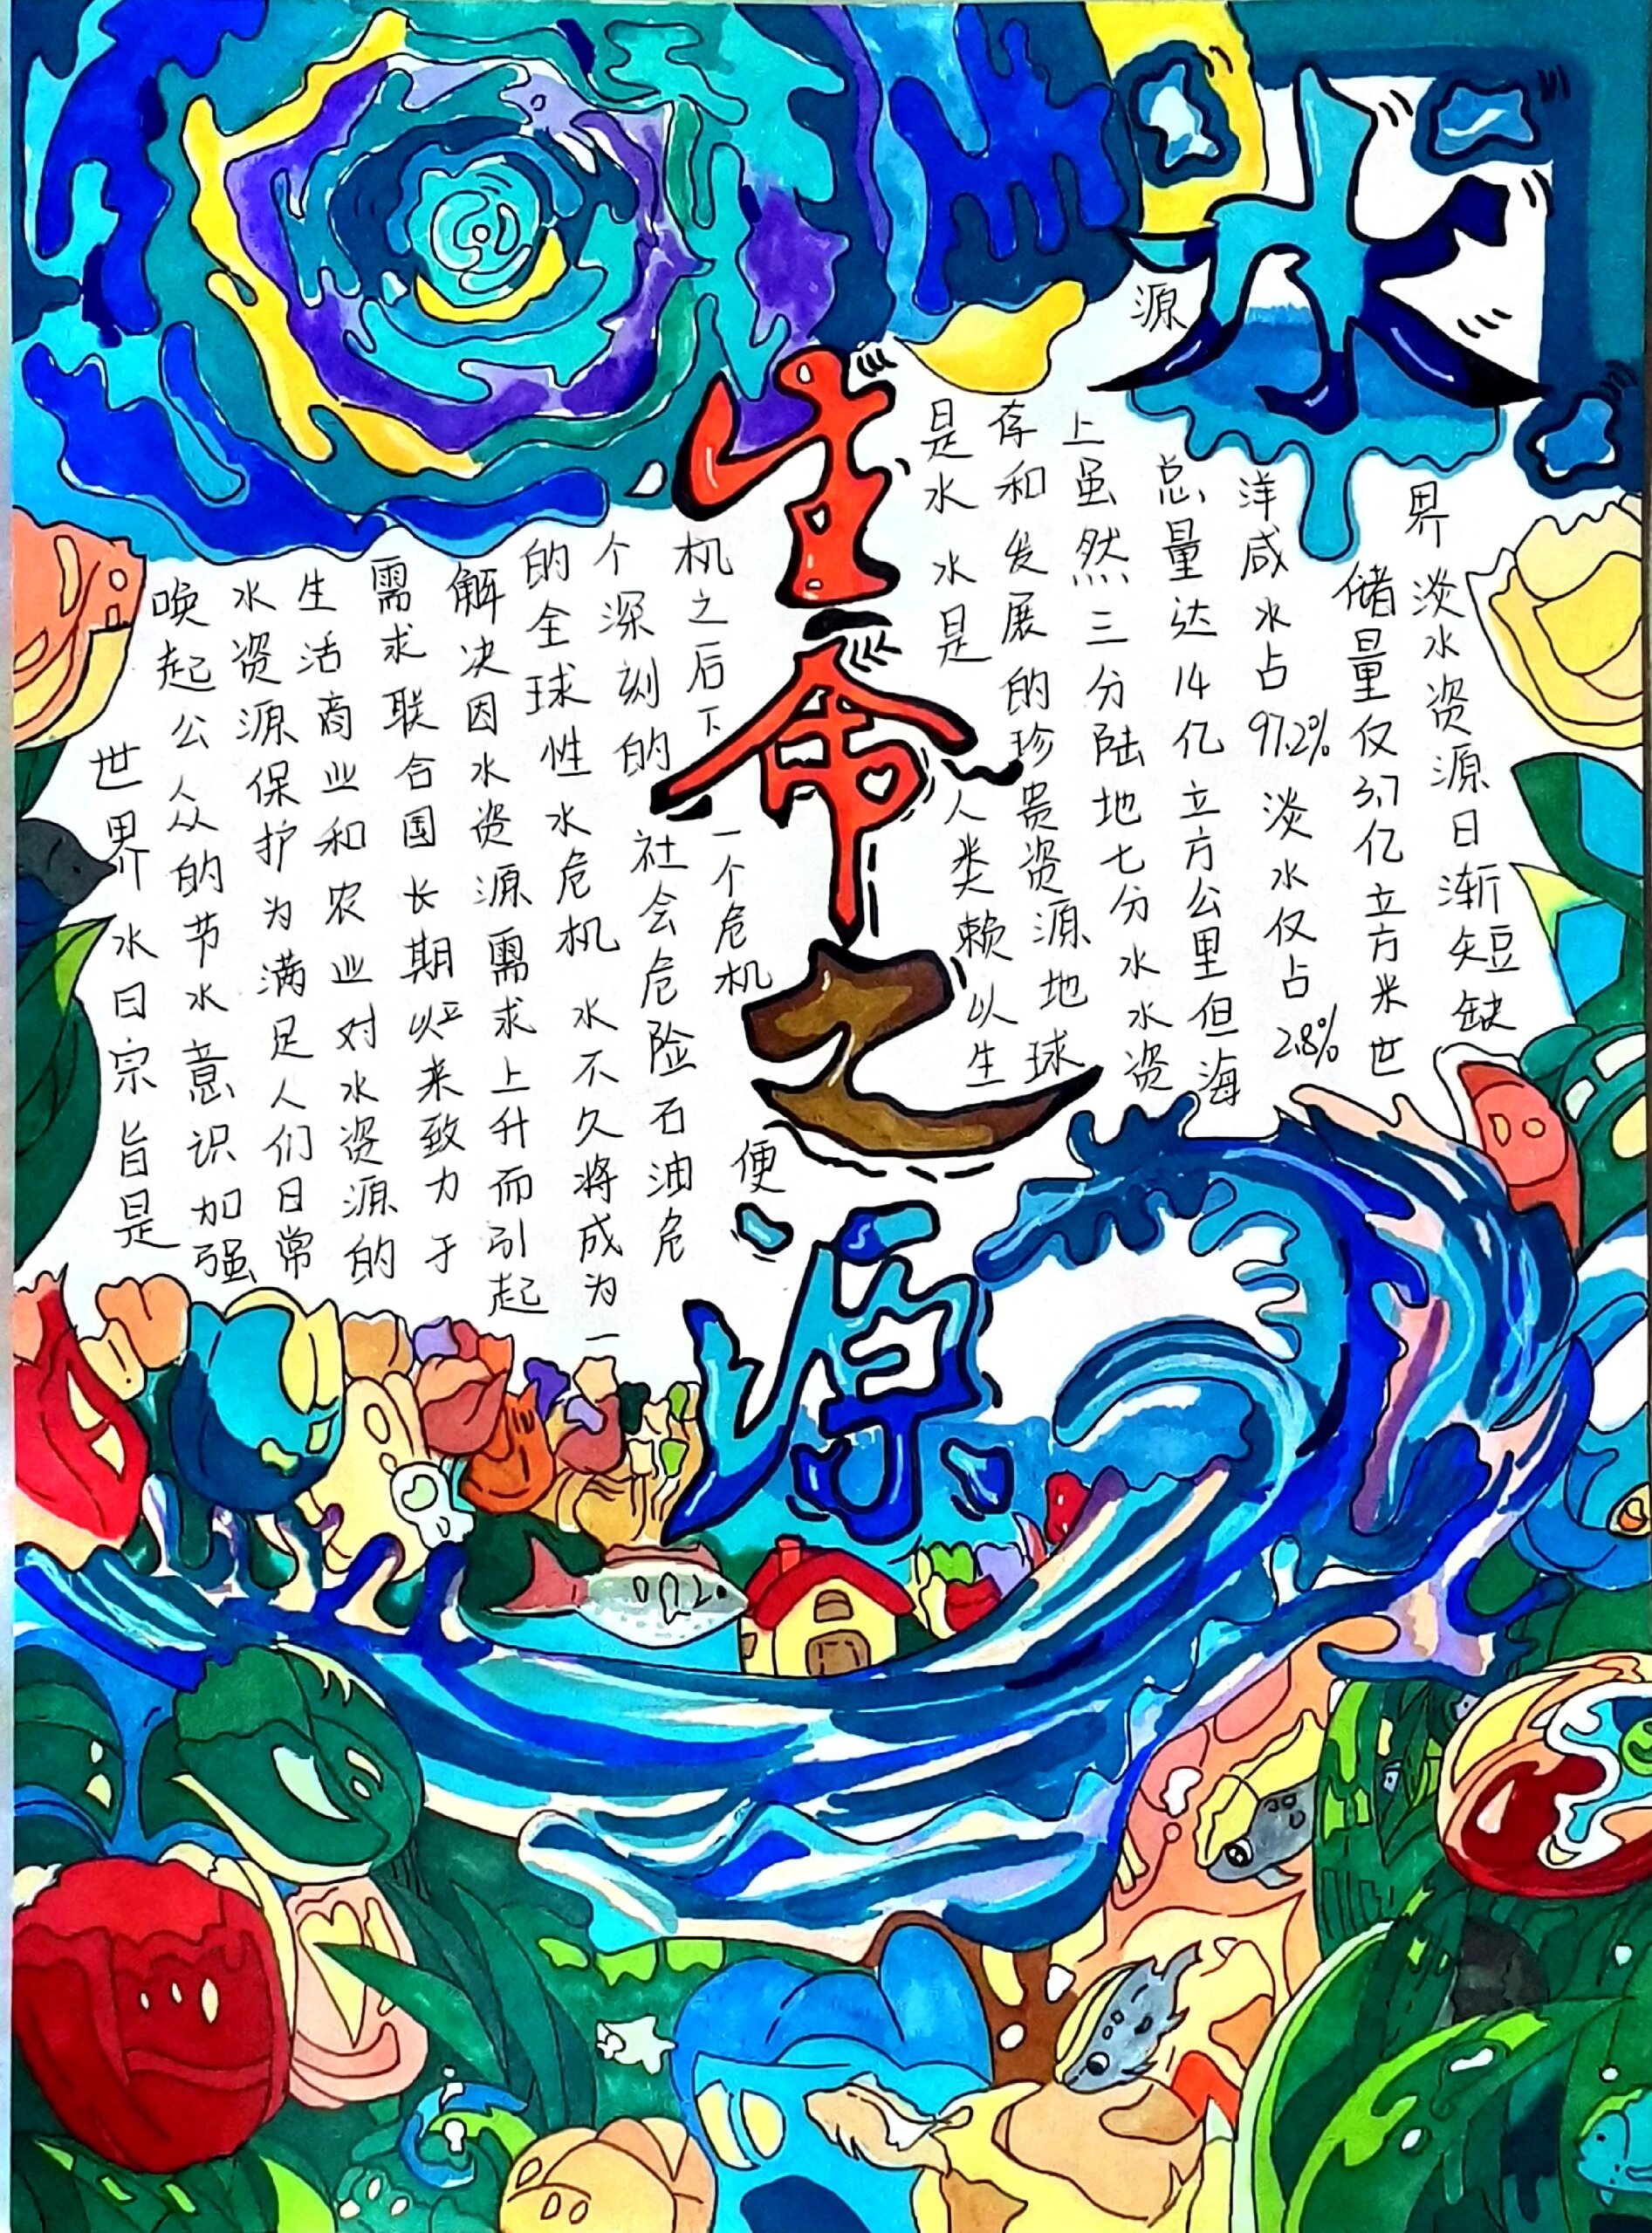 水
生命之源
世界水日宗旨是
唤起公众的节水意识加强
水资源保护为满足人们日常
生活商业和农业对水资源的
需求联合国长期以来致力于
解决因水资源需求上升而引起
的全球性水危机水不久将成为一
个深刻的社会危险石油危
机之后下一个危机便
是水水是人类赖以生
存和发展的珍贵资源地球
上虽然三分陆地七分水水资
源总量达14亿立方公里但海
洋咸水占97.2%淡水仅占2.8%
储量仅3.7亿立方米世
界淡水资源日渐短缺